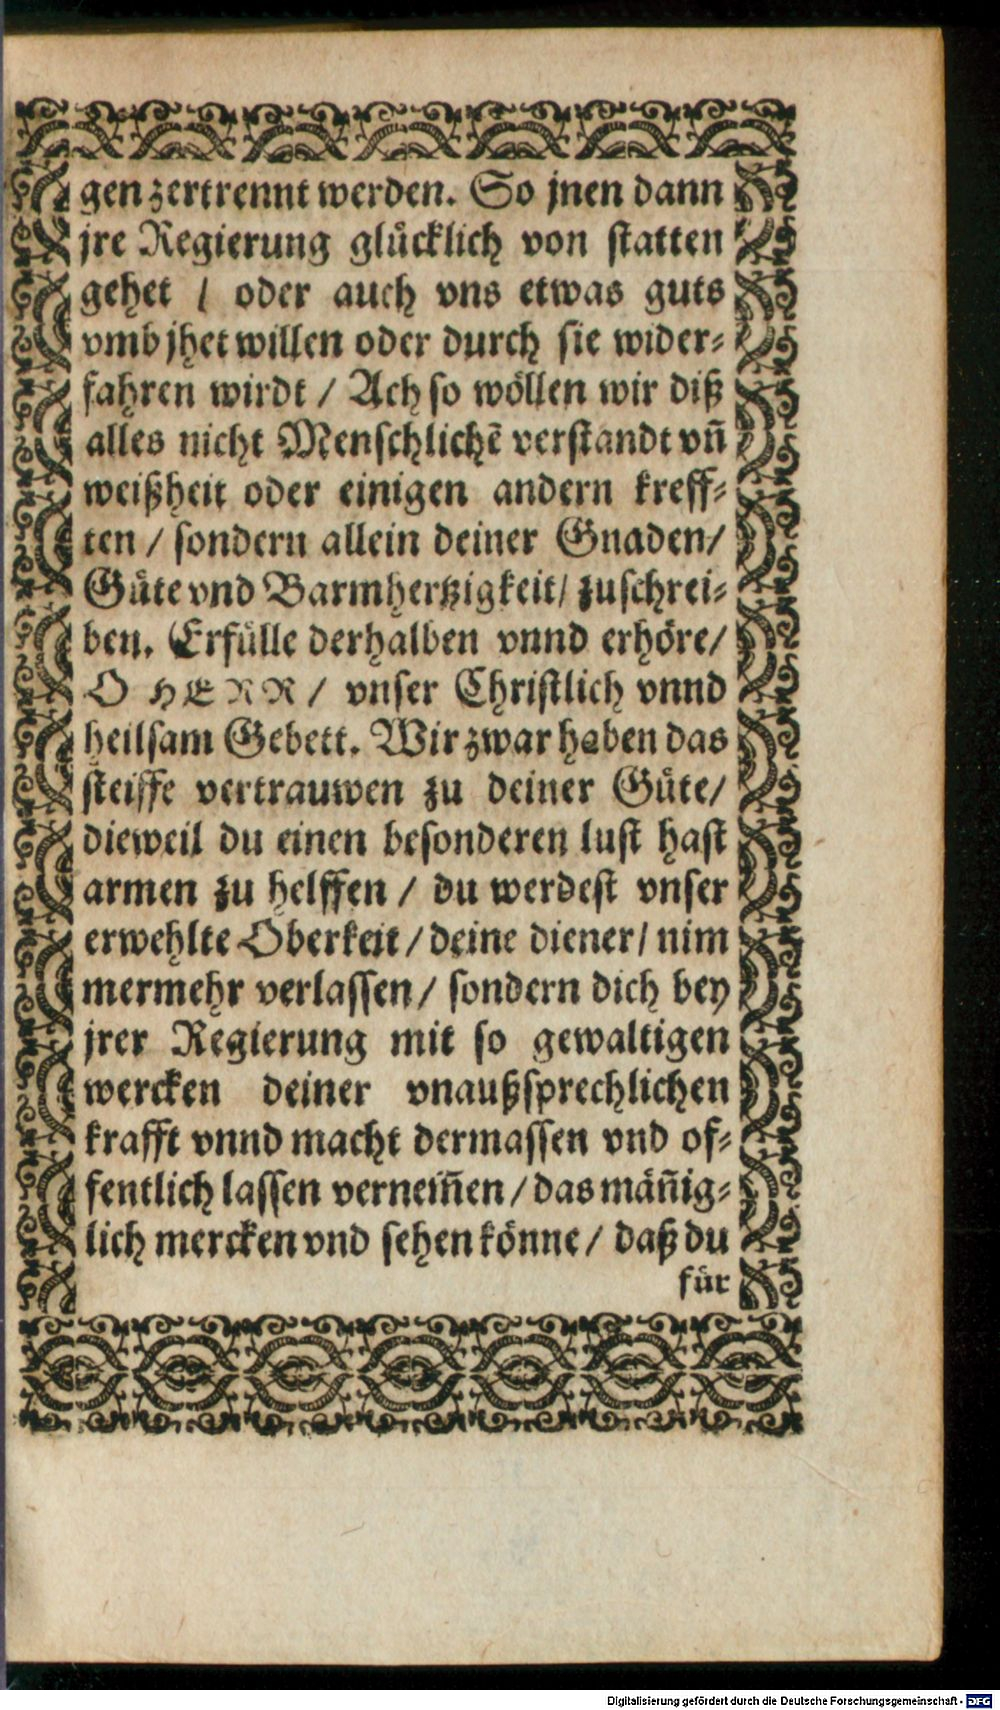 gen zertrennt werden. So jnen dann
jre Regierung glücklich von statten
gehet / oder auch vns etwas guts
vmb jhet willen oder durch sie wider⸗
fahren wirdt / Ach so wöllen wir diß
alles nicht Menschlichẽ verstandt vñ
weißheit oder einigen andern kreff⸗
ten / sondern allein deiner Gnaden/
Güte vnd Barmhertzigkeit/ zuschrei⸗
ben. Erfülle derhalben vnnd erhöre/
O HERR / vnser Christlich vnnd
heilsam Gebett. Wir zwar haben das
steiffe vertrauwen zu deiner Güte/
dieweil du einen besonderen lust hast
armen zu helffen / du werdest vnser
erwehlte Oberkeit / deine diener / nim
mermehr verlassen / sondern dich bey
jrer Regierung mit so gewaltigen
wercken deiner vnaußsprechlichen
krafft vnnd macht dermassen vnd of⸗
fentlich lassen vernem̃en / das mäñig⸗
lich mercken vnd sehen könne / daß du
für
Digitalisierung gefördert durch die Deutsche Forschungsgemeinschaft - DFG